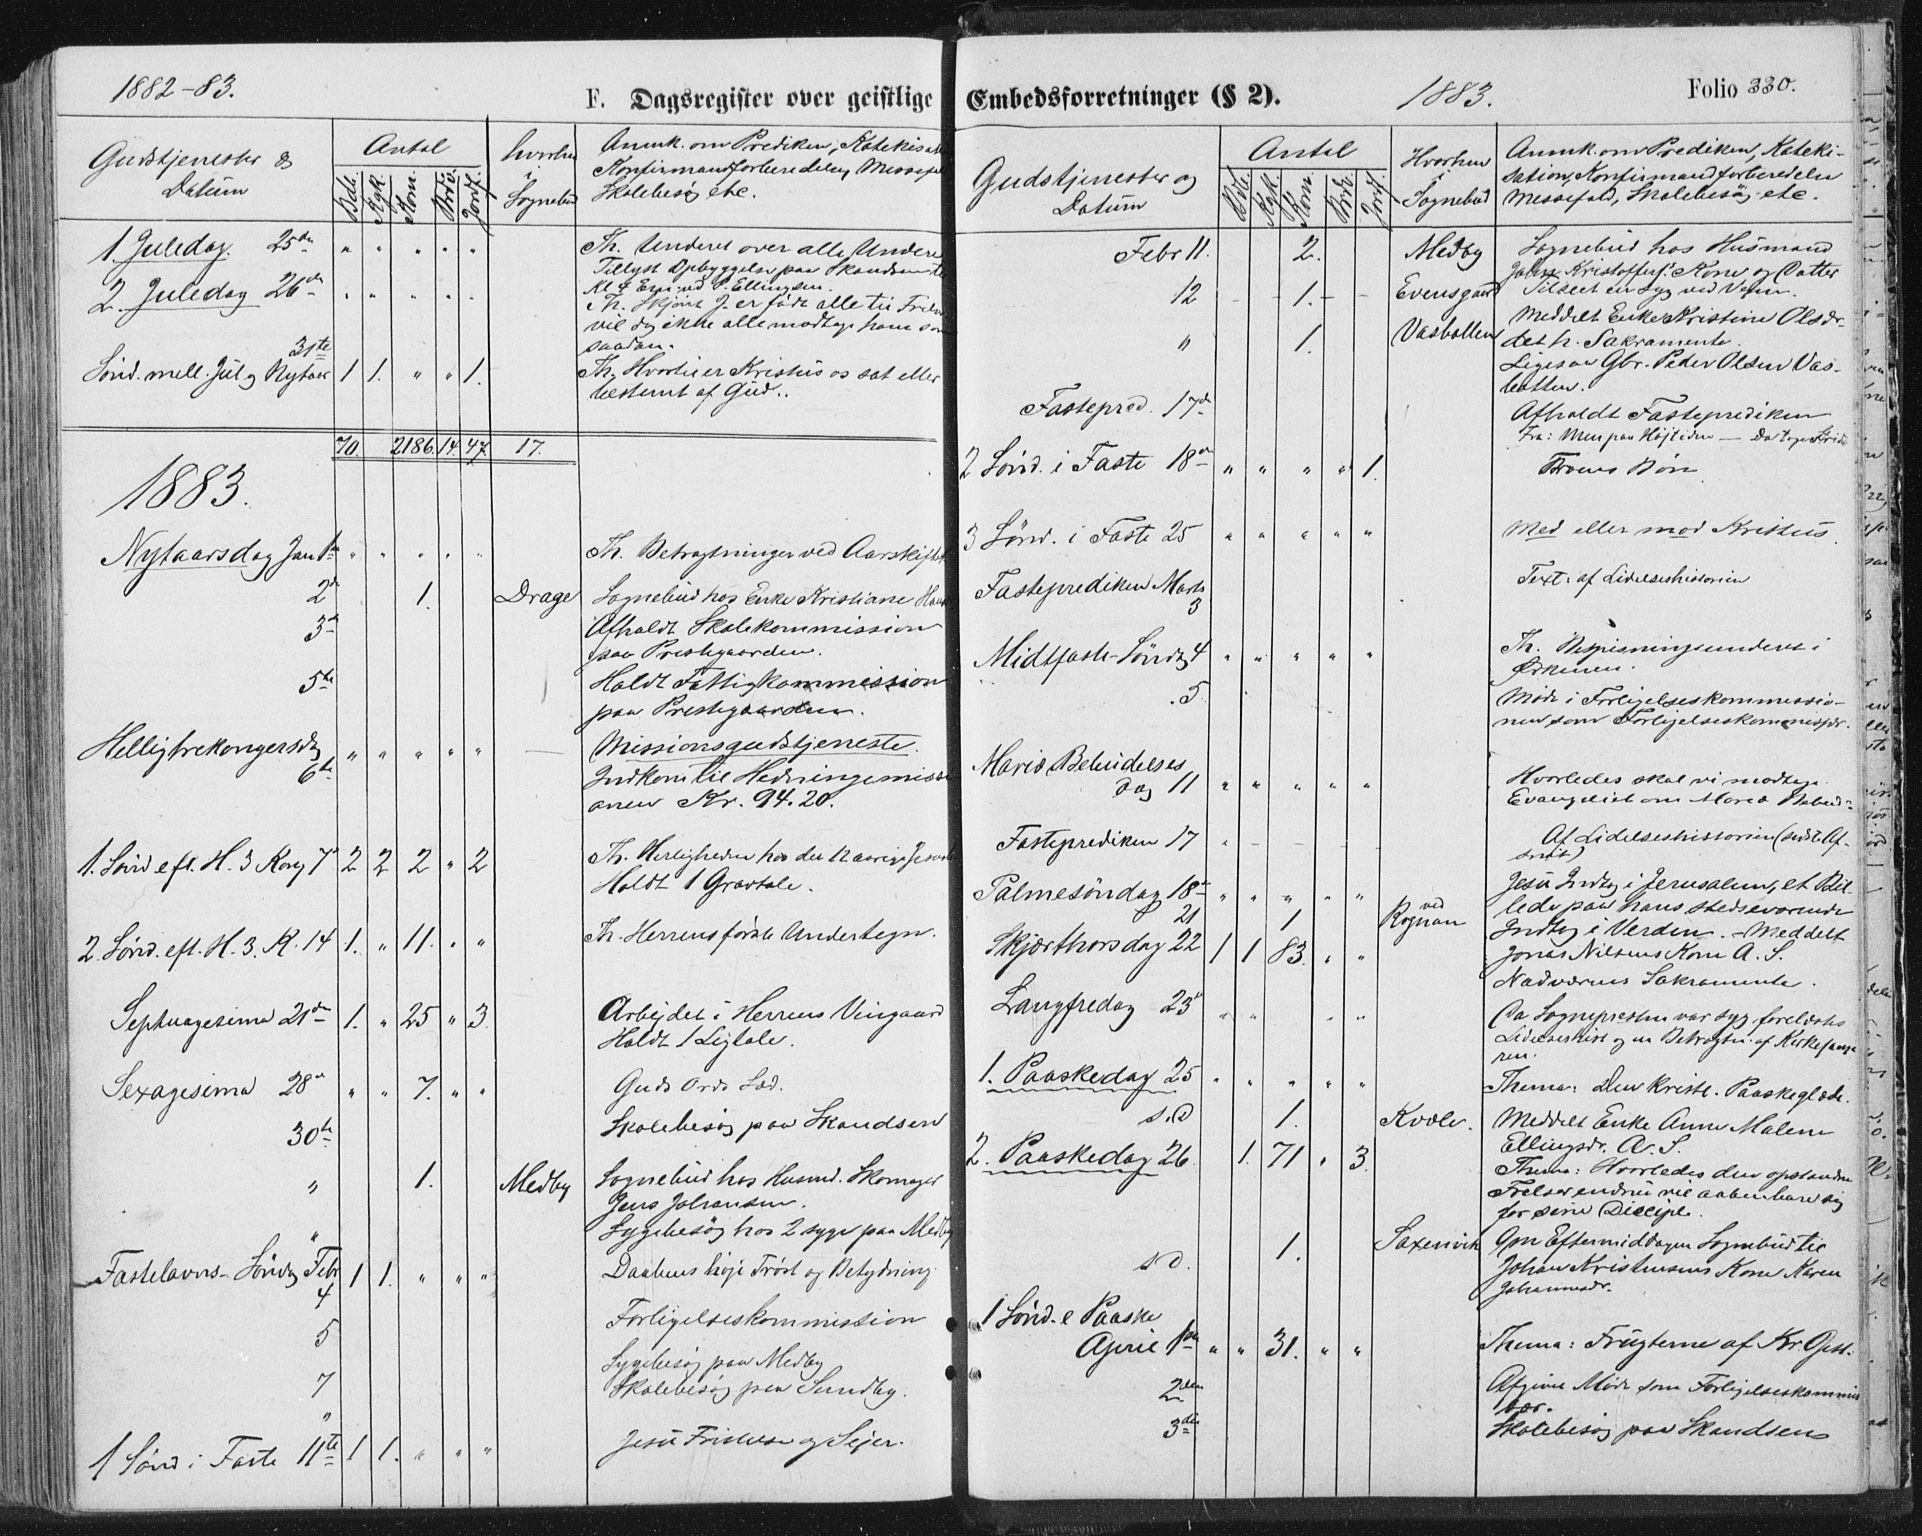 1882-83.
F. Dagsregister over geistlige
Gudstjenester &
Datum
Antal
Bdb.
Kgk.
Kom.
Brdv.
Jordf.
hvorhen
Sognebud
Anmk. om Prediken,
Konfirmandforberedelse, Messefa
Skolebesøg etc.
1. Juledag. 25de " " " " " Th. Underet over alle Undere
Tillyst Opbyggelse paa Skandsen
ved P. Ellingsen.
2. Juledag 26de " " " " " Th. er født alle til
vil dog ikke alle modtage ham som
saadan.
31te
Sønd. mell. Jul og Nytaar 1 1. " " 1. Th. Hvortil er Kristus os sat eller
bestemt af Gud..
70. 2186. 14. 47. 17.
1883.
Nytaarsdag Jan 1ste " " " " " Th. Betragtninger ved Aarskiftet
2de 1. Drage Sognebud hos Enke Kristiane
3de Afholdt Skolekommission
paa Prestegaarden.
5te Holdt Fattigkommission
paa Prestegaarden.
Helligtrekongersdag " " " " " Missionsgudstjeneste.
6te Indkom til Hedningemissi
onen Kr. 94.20.
1. Sønd eft. H. 3 Kong 7de 2 2 2 " 2 Th. Herligheden hos den 12 aarige
Holdt 1 Gravtale.
2. Sønd. eft. H. 3. K. 14 1. " 11. " " Th. Herrens første Undertegn.
Septuagesima 21de 1. " 25 " 3. Arbejdet i Herrens Vingaard
Holdt 1 Ligtale.
Sexagesima 28de " " 7. " " Guds Ords Sæd.
30te Skolebesøg paa Skandsen
" 1. Medby Sognebud hos Husmd. Skomager
Jens Johansen.
" Sygebesøg hos 2 syge paa Medby
Fastelavns-Søndag Febr 1 1. " " " Daabens høje Trøst og Betydning.
4
5 Forligelseskommission
7 Sygebesøg paa Medby
" Skolebesøg paa Sundby.
1 Sønd i Faste 11te 1 1. " " " Jesu Fristelse og Sejer.
Embedsforretninger (§ 2).
1883.
Folio 330.
Gudstjenester og
Datum
Antal
Bdb.
Kgk.
Kom.
Brdv.
Jordf.
Hvorhen
i
Sognebud
Anmk. om Prediken, Kateki-
sation, Konfirmandforberedelse
Messefald, Skolebesøg etc.
Febr 11. 2. Medby Sognebud hos Husmand
Kristoffers. Kone og Datter
12 - - 1. - - Evensgaard Tilseet en Syg ved
" 1. Vasbotten Meddelt Enke Kristine Olsdr.
det h. Sakramente.
Ligesaa Gbr. Peder Olsen Vas-
botten.
Fastepred. 17de Afholdt Fasteprediken
Fra: Men paa Højtiden —
2 Sønd. i Faste 18de " " " " 1. Troens Bøn
3 Sønd. i Faste 25 " " " " " Med eller mod Kristus.
Fasteprediken Marts Text: af Lidelseshistorien
3
Midtfaste-Søndag 4 " " " " " Th. Bespisningsunderet i
Ørkenen.
5 Møde i Forligelseskommissio-
nen som Forligelseskommissær.
Mariæ Bebudelses Hvorledes skal vi modtage
Dag 11 " " " " " Evangeliet om Mariæ Bebud:
Fasteprediken 17 - - - - - Af Lidelseshistorien (sidste Af-
snit)
Palmesøndag 18de " " " " " Jesu Indtog i Jerusalem, et Bil-
lede paa hans stedsevarende
21 1 ved Rognan Indtog i Verden. - Meddelt
Skjærthorsdag 22 1 1 83. " " Jonas Nilsens Kone A. S.
Nadverens Sakramente.
Langfredag 23de " " " " Da Sognepresten var syg forelæstes
Lidelseshist og en Betragtn. af Kirkesange
ren.
1. Paaskedag 25 " " " " " Thema: Den kristl. Paaskeglæde.
s.D 1. Kvæle. Meddelt Enke Anne Malene
Ellingsdr. A. S.
2. Paaskedag 26. 1. 71 " 3. Thema: Hvorledes den opstandne
Frelser endnu vil aabenbare sig
for sine Disciple.
s D. 1. Saxenvik Om Eftermiddagen Sognebud til
Johan Kristensens Kone Karen
Johannesdr.
1 Sønd. e Paaske
April 1ste " " 31. " " Thema: Frugterne af Kr Opst.
2den Afgiven Møde som Forligelseskommis
sær.
3die Skolebesøg paa Skandsen